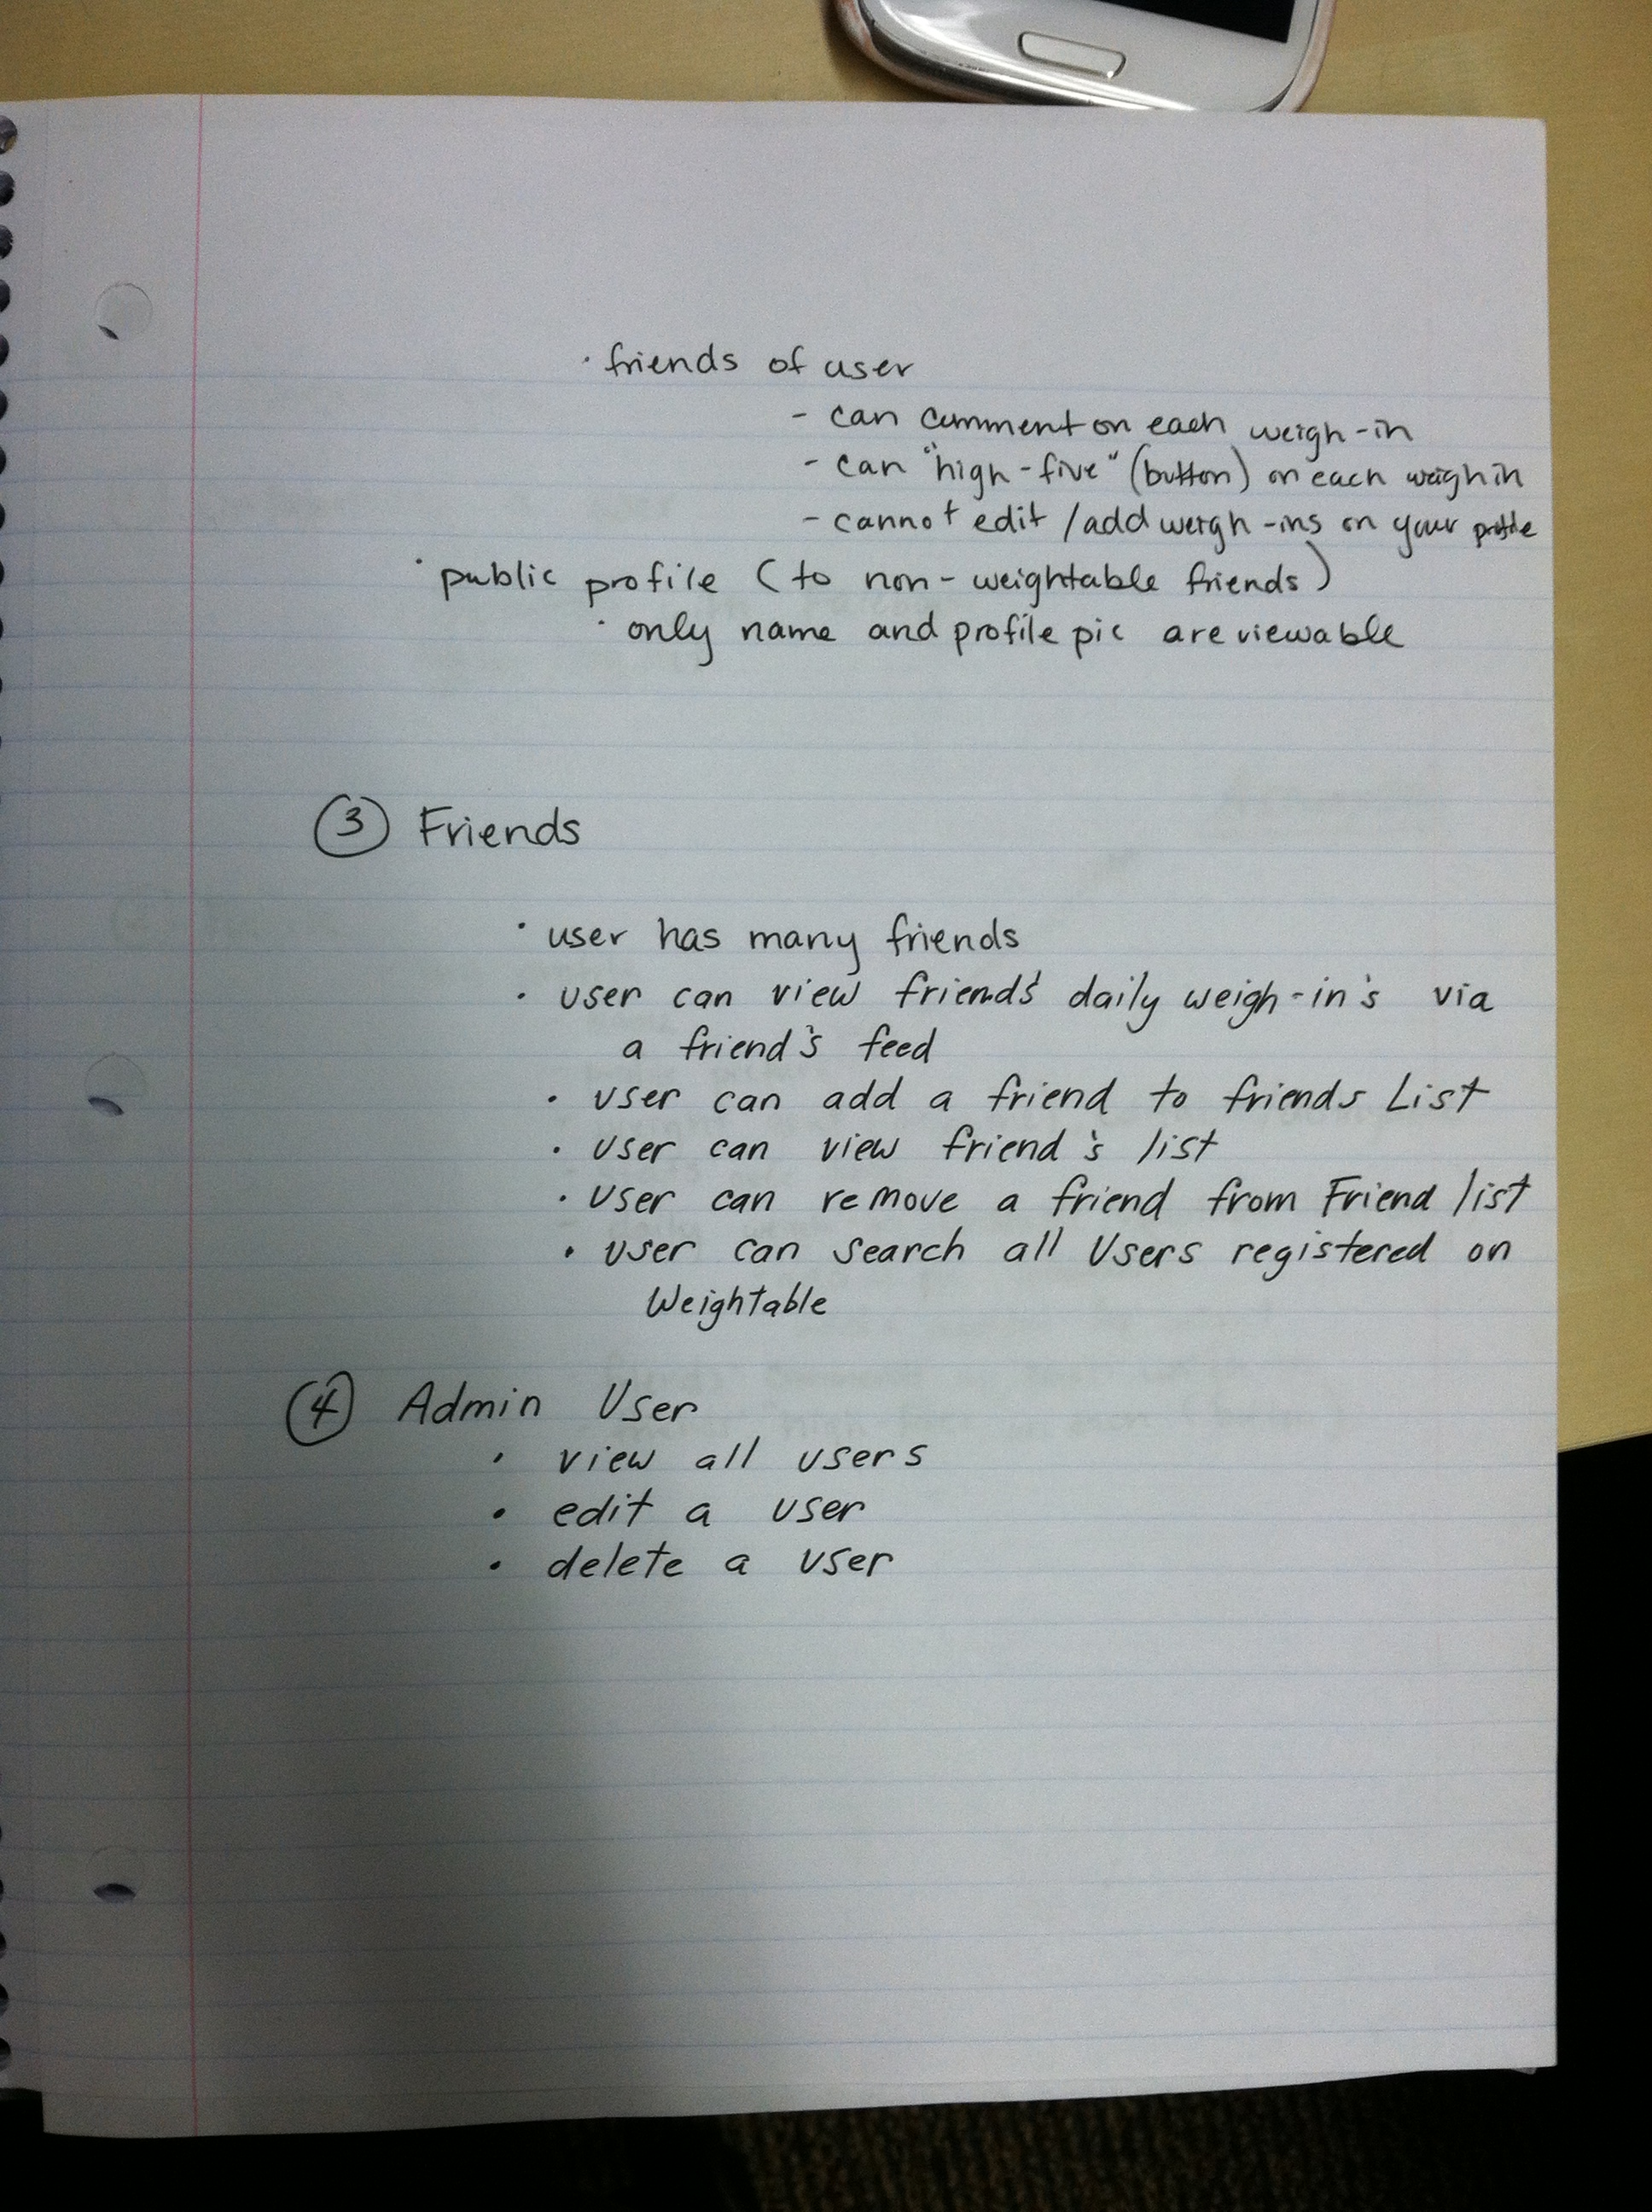 · friends of user
- can comment on each weigh-in
- can "high-five" (button) on each weighin
- cannot edit /add weigh-ins on your profile
· public profile (to non-weightable friends)
· only name and profile pic are viewable
③ Friends
· user has many friends
· user can view friend's daily weigh-in's via
a friend's feed
· user can add a friend to friends List
· user can view friend's list
· user can remove a friend from Friend list
· user can search all Users registered on
Weightable
④ Admin User
· view all users
· edit a user
· delete a user